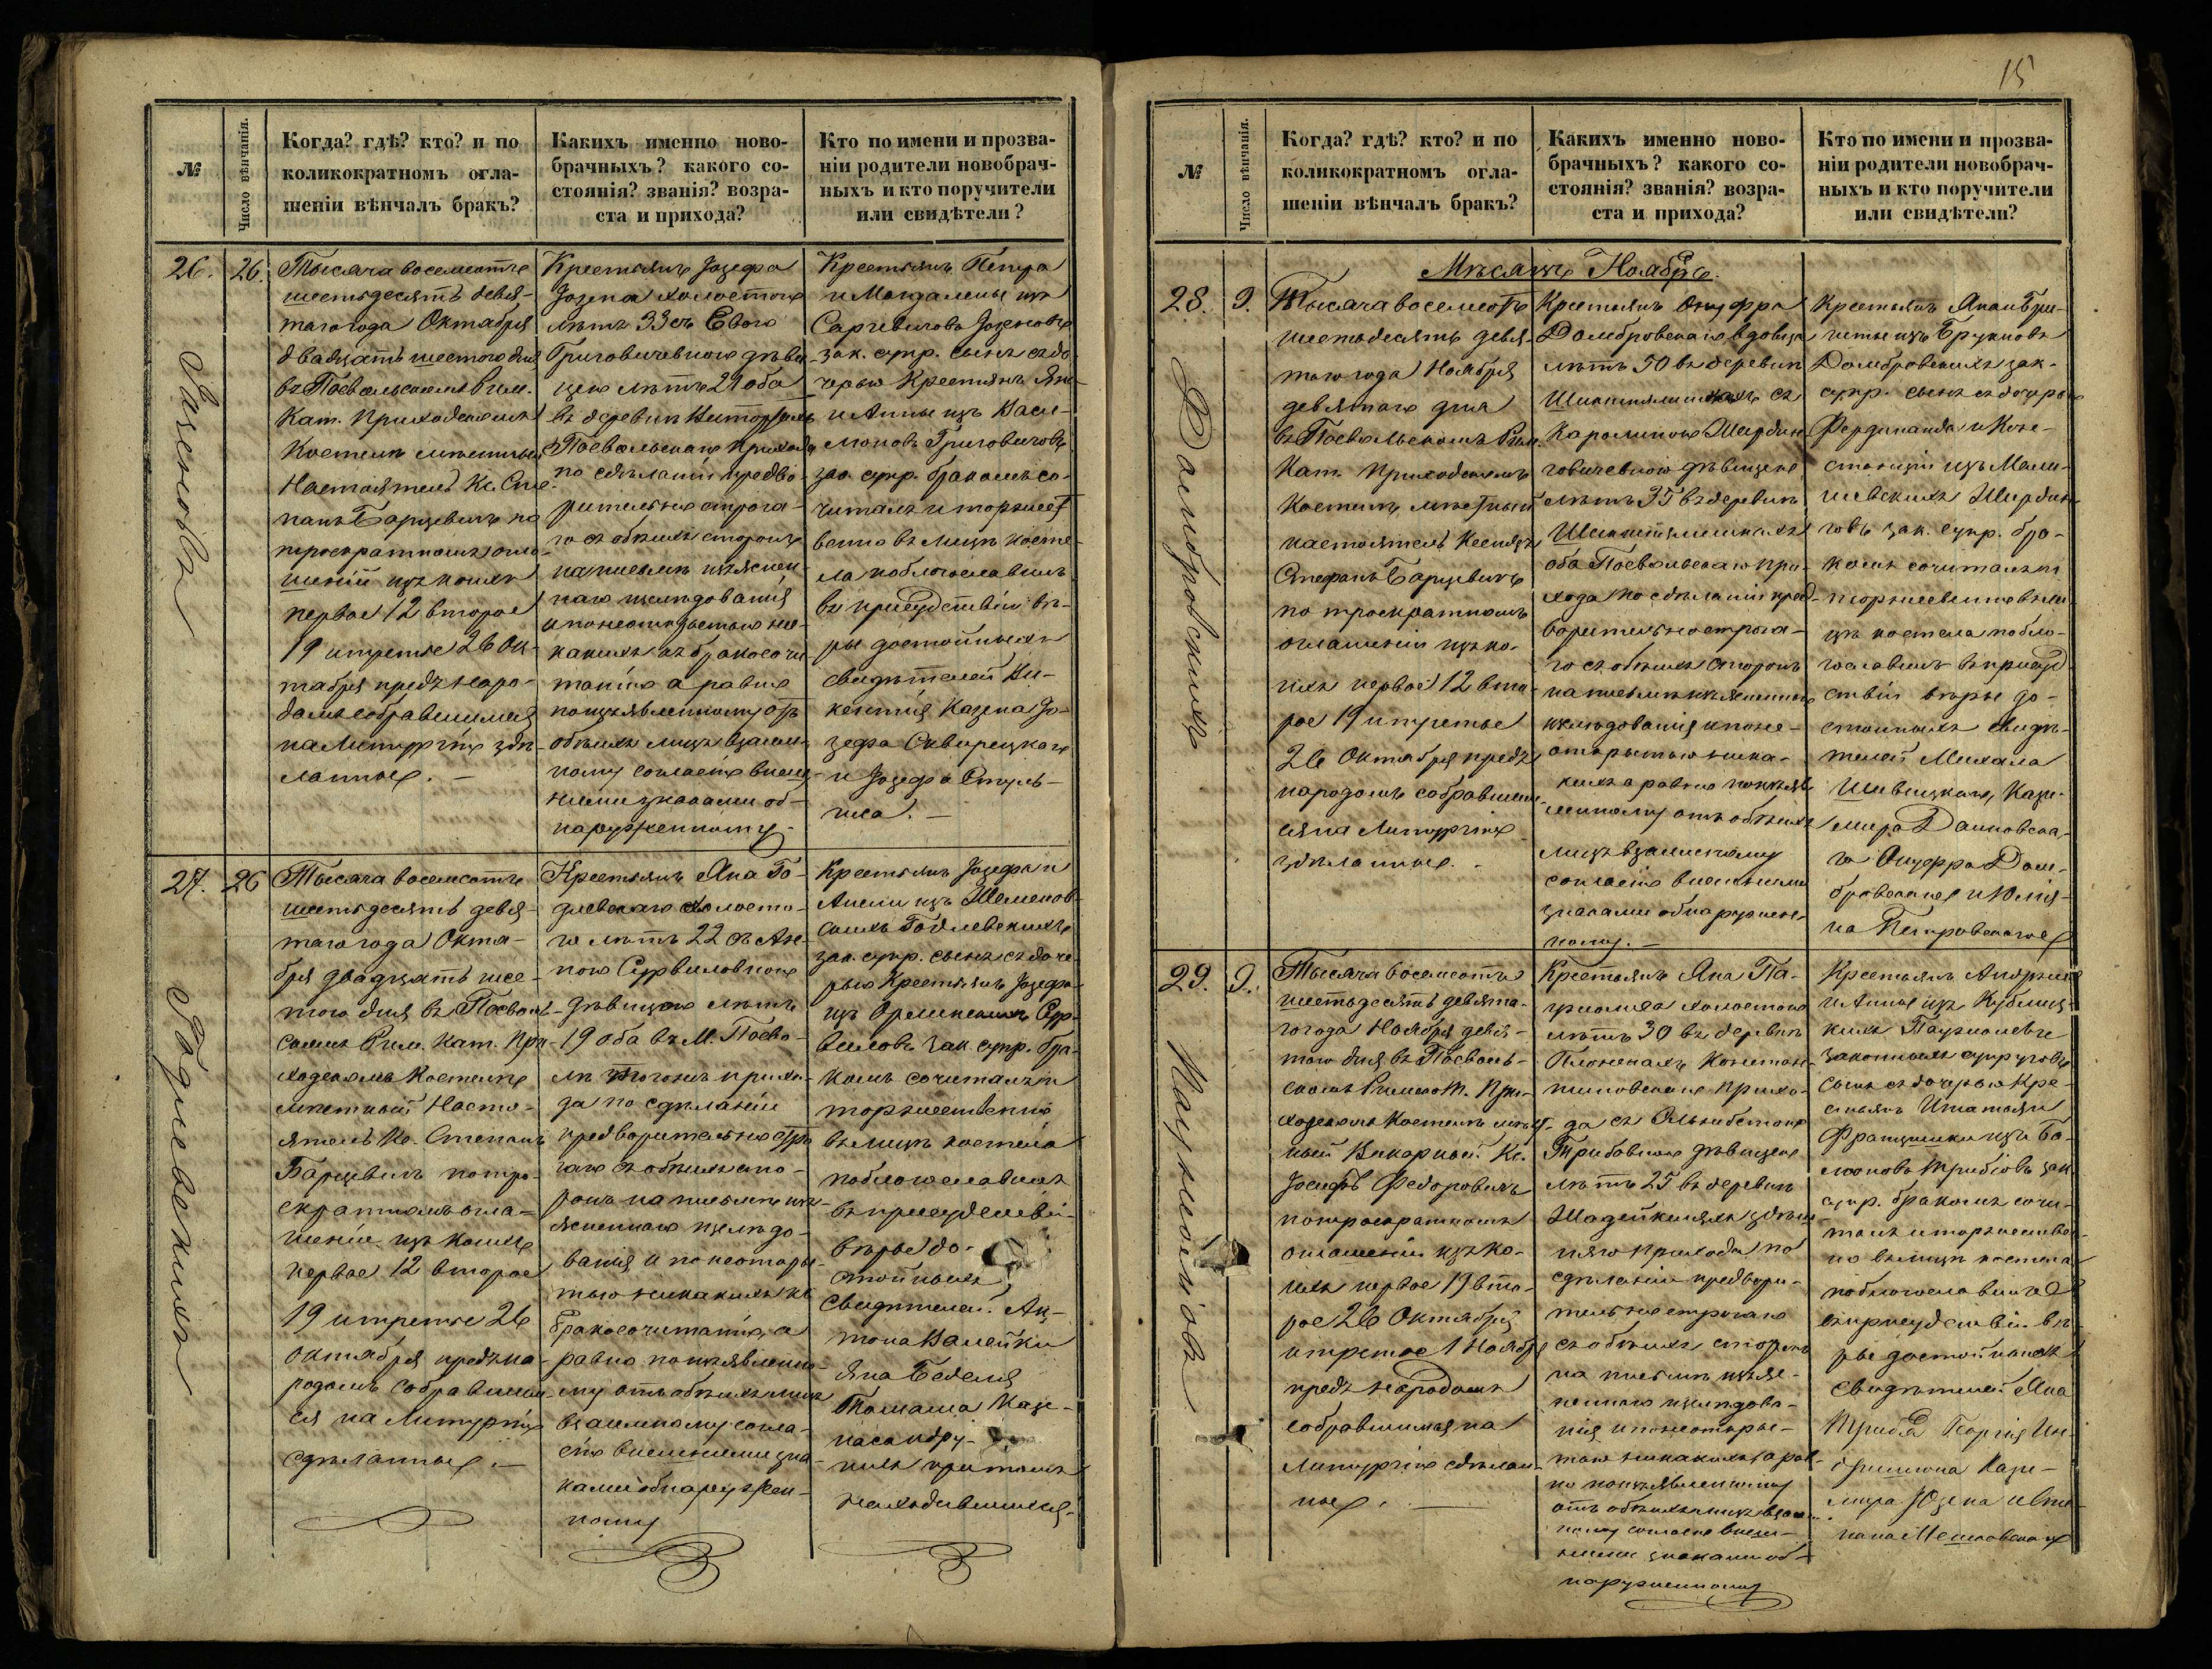 №
Число вѣнчанія.
Когда? гдѣ? кто? и по
коликократномъ огла-
шеніи вѣнчалъ бракъ?
Какихъ именно ново-
брачныхъ? какого со-
стоянія? званія? возра-
ста и прихода?
Кто по имени и прозва-
ніи родители новобрач-
ныхъ и кто поручители
или свидѣтели?
26.
26.
Тысяча восемсотъ
шестьдесятъ девя-
таго года Октября
двадцать шестого дня
въ Посвольскомъ Рим.
Кат. Приходскомъ
Костелѣ мѣстный
Настоятель Кс. Сте-
панъ Барцевичъ по
троекратномъ огла-
шеніи изъ коихъ
первое 12 второе
19 и третье 26 Ок-
табря предъ наро-
домъ собравшимся
на Литургію здѣ-
ланные. —
Крестьянъ Іозефа
Іозена холостого
лѣтъ 33 съ Евою
Григовичевною дѣви-
цею лѣтъ 21 оба
въ деревни
Посвольскаго прихода
по сдѣланіи предво-
рительно строга-
го съ обѣихъ сторонъ
на письмѣ изъяснен-
наго изслѣдованія
и понеоткрытію ни-
какихъ къ бракосочи
танію а равно
поизъявленному отъ
обѣихъ лицъ взаим-
ному согласію внеш-
ними знаками об-
наруженному
Крестьянъ Петра
и Магдалены изъ
Саргевичовъ Іозеновъ
зак. супр. сынъ съ до-
черью Крестьянъ Яна
и Анны изъ Васи-
моновъ Григовичовъ
зак. супр. бракомъ со-
читалъ и торжест
венно въ лицѣ косте-
ла поблогославилъ
въ присудствіи вѣ-
ры достойныхъ
свидѣтелей Ви-
кентія Казена Іо-
зефа Скворецкаго
и Іозефа Стуль-
гиса. —
27.
26
Годлевскихъ
Тысяча восемсотъ
шестьдесятъ девя-
таго года Октя-
бря двадцать шес-
того дня въ Посволь-
скомъ Рим. Кат. При-
ходскомъ Костелѣ
мѣстный Насто-
ятель Кс. Степанъ
Барцевичъ по тро-
екратномъ огла-
шеніи изъ коихъ
первое 12 второе
19 и третье 26
октября предъ на-
родомъ собравшим-
ся на Литургію
сдѣланные. —
Крестьянъ Яна Го-
длевскаго холосто-
го лѣтъ 22 съ Ан-
ною Сурвиловною
дѣвицею лѣтъ
19 оба въ М. Посво-
лѣ тогожъ прихо-
да по сдѣланіи
предварительно стро
гаго съ обѣихъ сто-
ронъ на письмѣ изъ-
ясненнаго изслѣдо-
ванія и по неоткры-
тью никакихъ къ
бракосочитанію, а
равно по изъявленно-
му отъ обѣихъ лицъ
взаимному согла-
сію внешними зна-
ками обнаружен-
ному
Крестьянъ Іозефа и
Анели изъ Шеменов-
скихъ Годлевскихъ
зак. супр. сынъ съ доче-
рью Крестьянъ Іозефа
изъ Орлинскихъ Сур-
виловъ зак. супр. бра-
комъ сочиталъ и
торжественно
въ лицѣ костела
поблогославилъ
въ присудствіи
вѣры до-
стойныхъ
Свидѣтелей Ан-
тона Валейки
Яна Беделя
Томаша Каз-
наса и дру-
гихъ притомъ
находившихся.
15
№
Число вѣнчанія.
Когда? гдѣ? кто? и по
коликократномъ огла-
шеніи вѣнчалъ бракъ?
Какихъ именно ново-
брачныхъ? какого со-
стоянія? званія? возра-
ста и прихода?
Кто по имени и прозва-
ніи родители новобрач-
ныхъ и кто поручители
или свидѣтели?
Мѣсяцъ Ноябрь.
28.
9.
Домбровскихъ
Тысяча восемсотъ
шестьдесятъ девя-
таго года Ноября
девятаго дня
въ Посвольскомъ Рим.
Кат. Приходскомъ
Костелѣ, мѣстный
настоятель Ксендзъ
Стефанъ Барцевичъ
по троекратномъ
оглашеніи изъ ко-
ихъ первое 12 вто-
рое 19 и третье
26 Октября предъ
народомъ собравшим-
ся на Литургію
здѣланные. -
Крестьянъ Онуфра
Домбровскаго вдовца
лѣтъ 50 въ деревни
съ
Каролиною Шердин-
говичевною дѣвицею
лѣтъ 35 въ деревни
оба Посвольскаго при-
хода по сдѣланіи пред-
варительно строга-
го съ обѣихъ сторонъ
на письмѣ изъясненнаго
изслѣдованія и поне-
открытью ника-
кихъ а равно поизъяв
ленному отъ обѣихъ
лицъ взаимному
согласію внешними
знаками обнаружен-
ному. —
Крестьянъ Яна и Бри-
гиты изъ Брукновъ
Домбровскихъ зак.
супр. сынъ съ дочерью
Фердинанда и Кон-
станціи изъ Мали-
шевскихъ Шердин-
говъ зак. супр. бра-
комъ сочиталъ и
торжественно въ ли-
цѣ костела побло-
гославилъ въ присуд-
ствіи вѣры до-
стойныхъ свидѣ-
телей Михала
Шивицкаго, Кази-
мира Даиновска-
го Онуфра Дом-
бровскаго и Юлія-
на Петровскаго
29.
9.
Паузнолисовъ
Тысяча восемсотъ
шестьдесятъ девята-
го года Ноября девя-
таго дня въ Посволь-
скомъ Римско К. При-
ходскомъ Костелѣ мѣст-
ный Викарный Кс.
Іосифъ Федоровичъ
по троекратномъ
оглашеніи изъ ко-
ихъ первое 19 вто-
рое 26 Октября
и третое 1 Ноября
предъ народомъ
собравшимся на
Литургію сдѣлан-
ные. —
Крестьянъ Яна
холостого
лѣтъ 30 въ деревни
Констан-
тиновскаго прихо-
да съ Ельжбетою
Трибовною дѣвицею
лѣтъ 25 въ деревни
здѣш-
няго прихода по
сдѣланіи предвари-
тельно строгаго
съ обѣихъ сторонъ
на письмѣ изъяс-
неннаго изслѣдова-
нія и понеоткры-
тью никакихъ а рав-
но поизъявленному
отъ обѣихъ лицъ взаим-
ному согласію внеш-
ними знаками об-
наруженному
Крестьянъ Андржея
и Анны изъ Кублиц-
кихъ
законныхъ супруговъ
сынъ съ дочерью Кре-
стьянъ Игнатія и
Францишки изъ
Трибовъ зак.
супр. бракомъ сочи-
талъ и торжествен-
но въ лицѣ костела
поблогославилъ
въ присудствіи вѣ-
ры достойныхъ
Свидѣтелей Яна
Триба Георгія
Кази-
мира Юзена и Сте-
пана